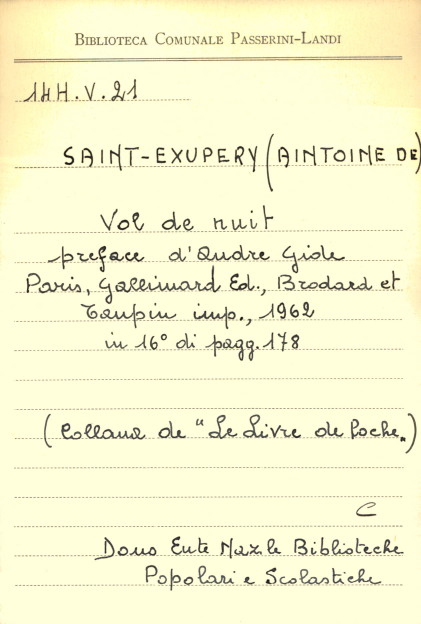 BIBLIOTECA COMUNALE PASSERINI-LANDI
14H.V.21
SAINT-EXUPERY (AINTOINE DE)
Vol de nuit
preface d'Andre Gide
Paris, Gallimard Ed., Brodard et
Taupin imp., 1962
in 16° di pagg. 178
(Collana de "Le Livre de Poche„)
C
Dono Ente Naz.le Biblioteche
Popolari e Scolastiche